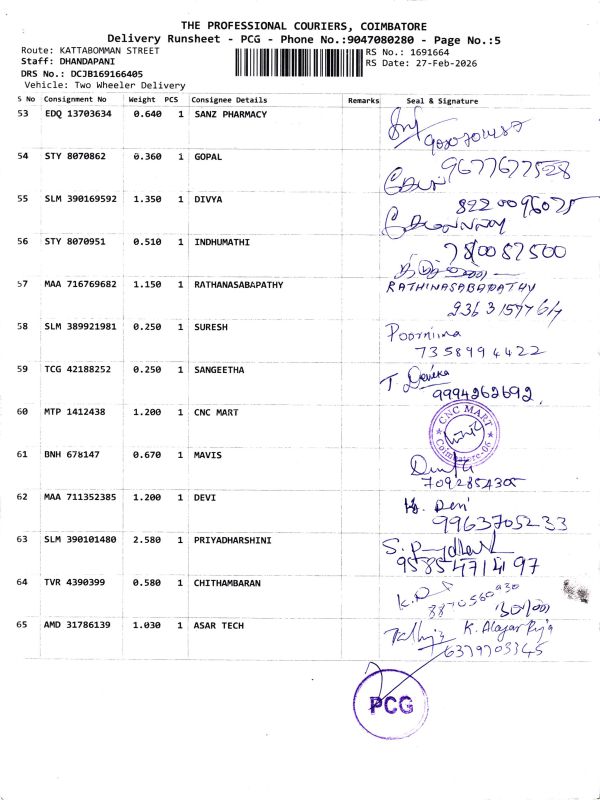 THE PROFESSIONAL COURIERS, COIMBATORE
Delivery Runsheet - PCG - Phone No.:9047080280 - Page No.:5
Route: KATTABOMMAN STREET RS No.: 1691664
Staff: DHANDAPANI RS Date: 27-Feb-2026
DRS No.: DCJB169166405
Vehicle: Two Wheeler Delivery
S No Consignment No Weight PCS Consignee Details Remarks Seal & Signature
53 EDQ 13703634 0.640 1 SANZ PHARMACY
54 STY 8070862 0.360 1 GOPAL
9677677528
55 SLM 390169592 1.350 1 DIVYA
8220096075
56 STY 8070951 0.510 1 INDHUMATHI
7810087500
57 MAA 716769682 1.150 1 RATHANASABAPATHY RATHINASABAPATHY
58 SLM 389921981 0.250 1 SURESH Poornima
7358994422
59 TCG 42188252 0.250 1 SANGEETHA T. Deveka
9994262692
60 MTP 1412438 1.200 1 CNC MART CNC MART
Coimbatore-06
61 BNH 678147 0.670 1 MAVIS
7092854305
62 MAA 711352385 1.200 1 DEVI Devi
9963705233
63 SLM 390101480 2.580 1 PRIYADHARSHINI
9585471497
64 TVR 4390399 0.580 1 CHITHAMBARAN
65 AMD 31786139 1.030 1 ASAR TECH K. Alagar Raja
6379703345
PCG